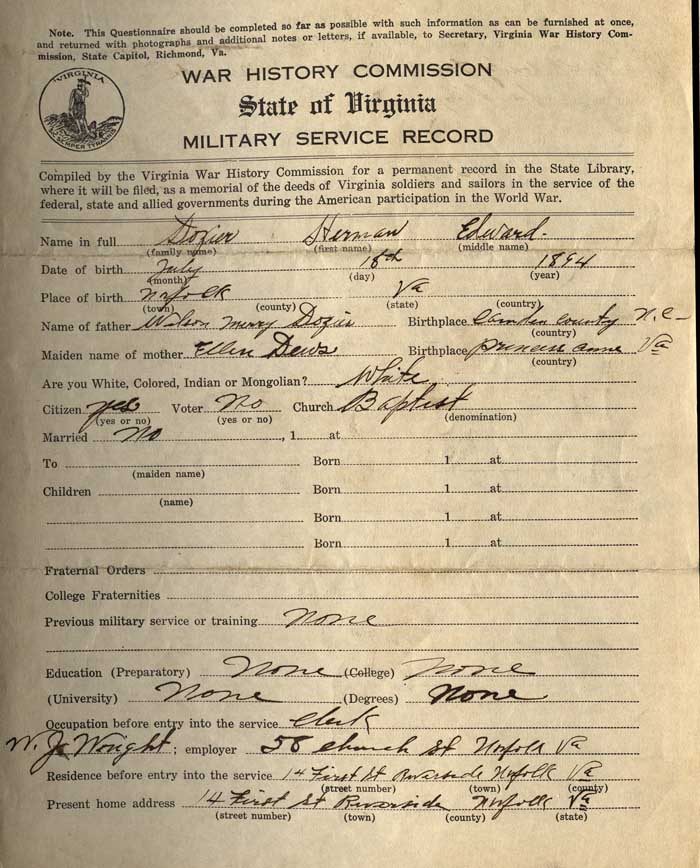 Note. This Questionnaire should be completed so far as possible with such information as can be furnished at once,
and returned with photographs and additional notes or letters, if available, to Secretary, Virginia War History Com-
mission, State Capitol, Richmond, Va.
VIRGINIA
SIC SEMPER TYRANNIS
WAR HISTORY COMMISSION
State of Virginia
MILITARY SERVICE RECORD
Compiled by the Virginia War History Commission for a permanent record in the State Library,
where it will be filed, as a memorial of the deeds of Virginia soldiers and sailors in the service of the
federal, state and allied governments during the American participation in the World War.
Name in full Dozier Herman Edward.
(family name) (first name) (middle name)
Date of birth July 18th 1894
(month) (day) (year)
Place of birth Norfolk Va
(town) (county) (state) (country)
Name of father Wilson Merry Dozier Birthplace Camden County N.C.
(country)
Maiden name of mother Ellen Dews Birthplace Princess Anne Va
(country)
Are you White, Colored, Indian or Mongolian? White
Citizen yes Voter No Church Baptist
(yes or no) (yes or no) (denomination)
Married No, 1 at
To Born 1 at
(maiden name)
Children Born 1 at
(name)
Born 1 at
Born 1 at
Fraternal Orders
College Fraternities
Previous military service or training None
Education (Preparatory) None (College) None
(University) None (Degrees) None
Occupation before entry into the service Clerk
W. J. Wright; employer 58 Church St Norfolk Va
Residence before entry into the service 14 First St Riverside Norfolk Va
(street number) (town) (county)
Present home address 14 First St Riverside Norfolk Va
(street number) (town) (county) (state)